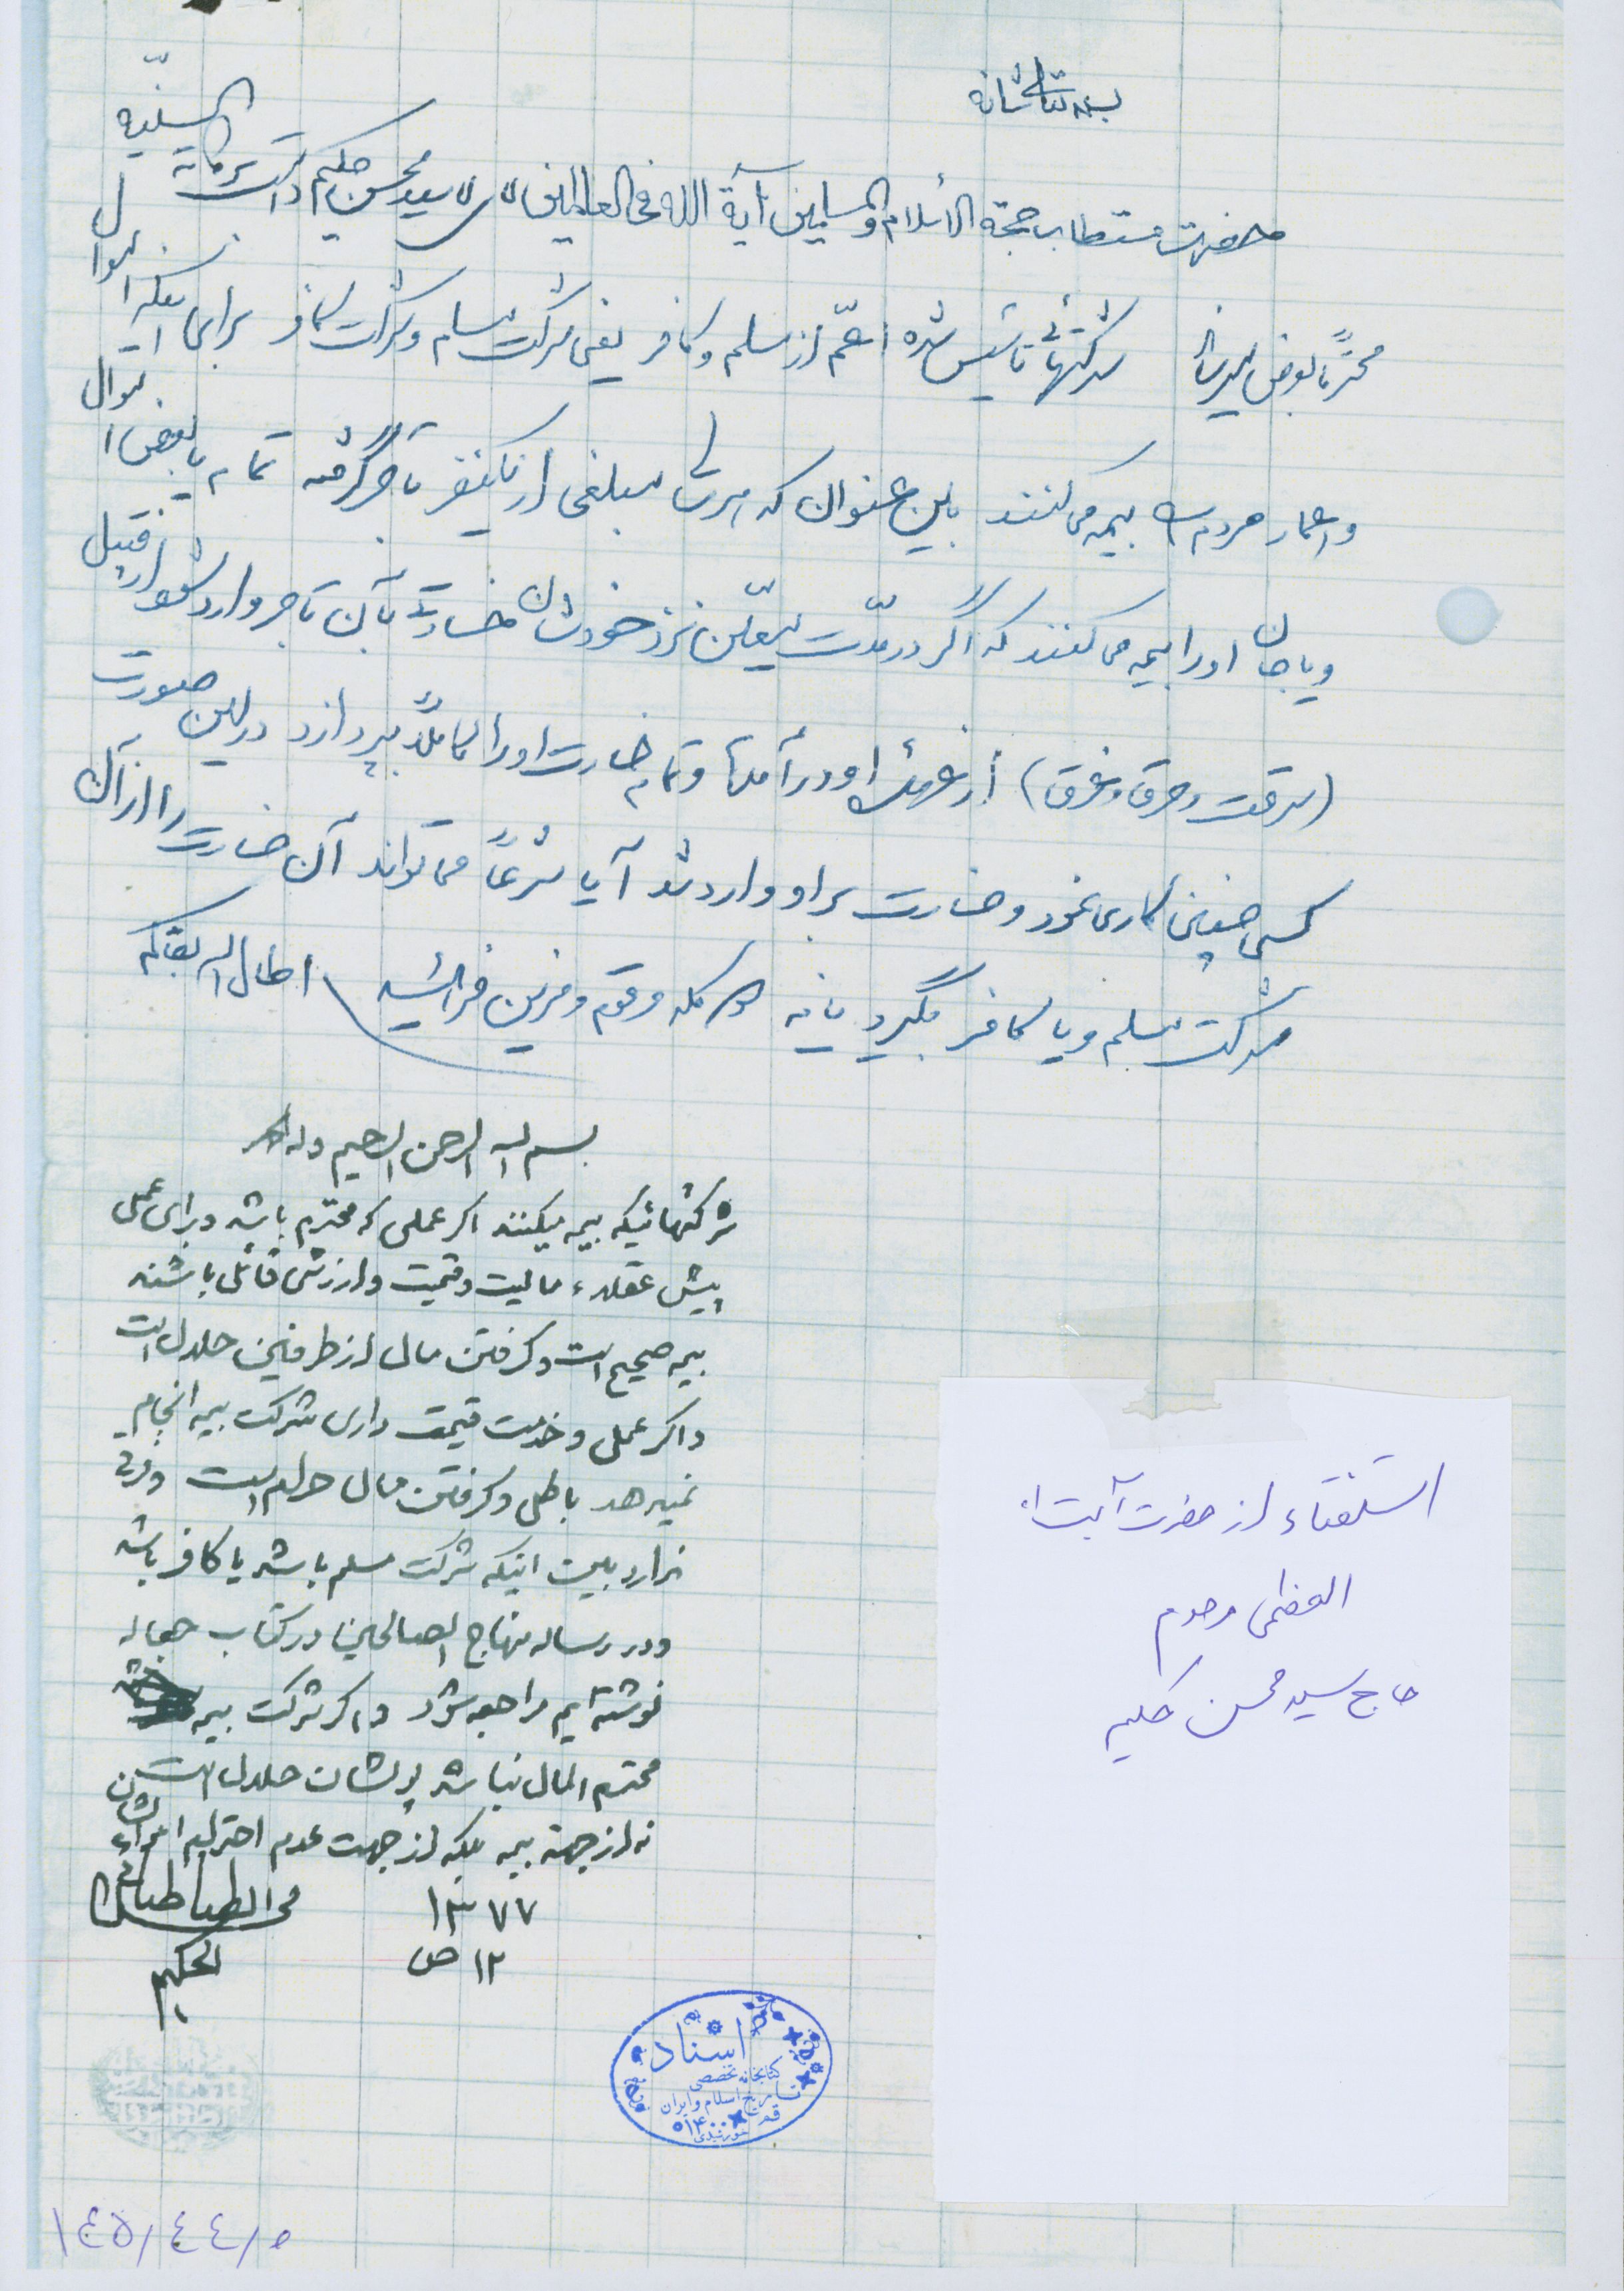 بسمه تعالی شانه
حضرت مستطاب حجة الأسلام والمسلمین آیة الله فی العالمین سید محسن حکیم دامت برکاته السنیّه
محترماً بعرض میرساند شرکتهائی تأسیس شده اعمّ از مسلم و کافر یعنی شرکت مسلم و شرکت کافر برای اینکه اموال
و اعمار مردم را بیمه می کنند باین عنوان که هر سال مبلغی از یکنفر تاجر گرفته تمام یا بعض اموال
و یا جان او را بیمه می کنند که اگر در مدّت معیّن نزد خودشان خسارت بآن تاجر وارد شود از قبیل
(سرقت و حرق و غرق) از عهدۀ او درآمده و تمام خسارت او را کاملاً بپردازد در این صورت
کسی چنین کاری نمود و خسارت بر او وارد شد آیا شرعاً می تواند آن خسارت را از آن
شرکت مسلم و یا کافر بگیرد یا نه مرقوم و مزین فرمائید اطال الله بقائکم
بسم الله الرحمن الرحیم وله الحمد
شرکتهائیکه بیمه میکنند اگر عملی که محترم باشد و برای عملی
پیش عقلاء مالیت و قیمت و ارزش قائل باشند
بیمه صحیح است و گرفتن مال از طرفین حلال است
و اگر عملی و خدمت قیمت داری شرکت بیمه انجام
نمیدهد باطل و گرفتن مال حرام است و فرقی
ندارد بین اینکه شرکت مسلم باشد یا کافر باشد
و در رساله منهاج الصالحین در کتاب جعاله
نوشته ایم مراجعه شود و اگر شرکت بیمه
محترم المال نباشد پولشان حلال است
نه از جهة بیمه بلکه از جهت عدم احترام اموالشان
محسن الطباطبائی
الحکیم
۱۳۷۷
۱۲ ص
استفتاء از حضرت آیت الله
العظمی مرحوم
حاج سید محسن حکیم
اسناد
کتابخانه تخصصی
تاریخ اسلام و ایران
قم
۱٤۵/٤٤/۵